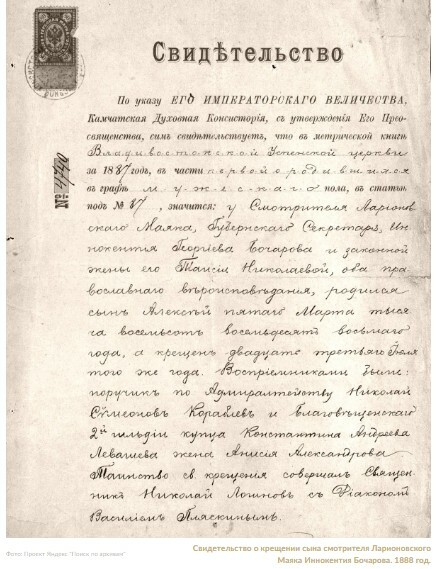 Свидѣтельство
По указу ЕГО ИМПЕРАТОРСКАГО ВЕЛИЧЕСТВА,
Камчатская Духовная Консисторія, съ утвержденія Его Прео-
священства, симъ свидѣтельствуетъ, что въ метрической книгѣ
Владивостокской Успенской церкви
за 1887 годъ, въ части первой о родившихся
въ графѣ мужескаго пола, въ статьѣ
подъ № 87, значится: у Смотрителя Ларіонов-
скаго Маяка, Губернскаго Секретаря, Ин-
нокентія Георгіева Бочарова и законной
жены его Таисіи Николаевой, оба пра-
вославнаго вѣроисповѣданія, родился
сынъ Алексѣй пятаго Марта тыся
ча восемьсотъ восемьдесятъ восьмаго
года, а крещенъ двадцать третьяго Іюля
того же года. Воспріемниками были:
поручикъ по Адмиралтейству Николай
Сѵмеоновъ Кораблевъ и Благовѣщенскаго
2й гильдіи купца Константина Андреева
Левашева жена Анисія Александрова
Таинство св. крещенія совершалъ Священ-
никъ Николай Логиновъ съ Діакономъ
Василіемъ Пляскинымъ.
Фото: Проект Яндекс "Поиск по архивам"
Свидетельство о крещении сына смотрителя Ларионовского
Маяка Иннокентия Бочарова. 1888 год.